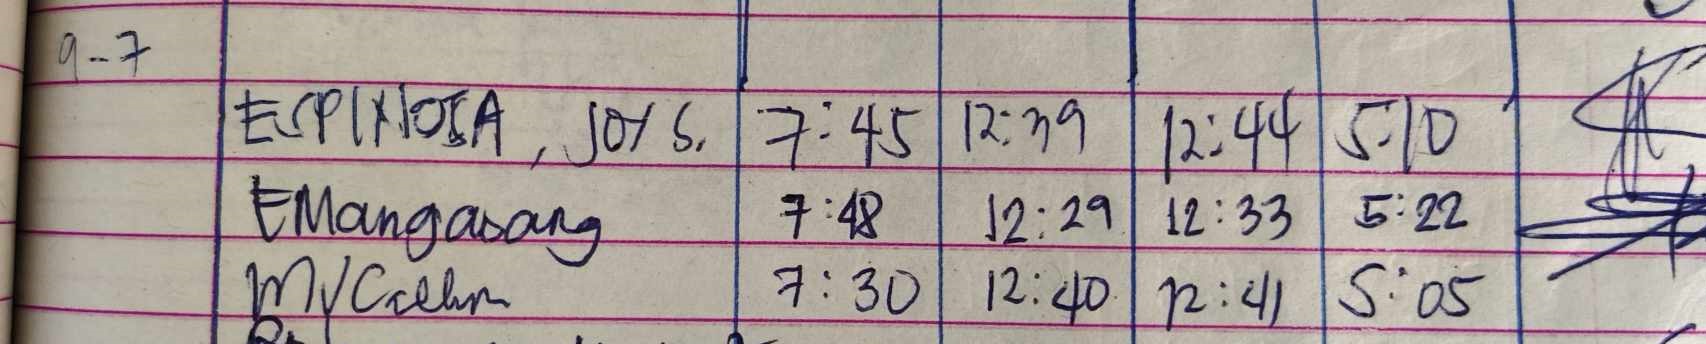 9-7
ESPINOSA, JOY S. 7:45 12:39 12:44 5:10
EMangasang 7:48 12:29 12:33 5:22
7:30 12:40 12:41 5:05